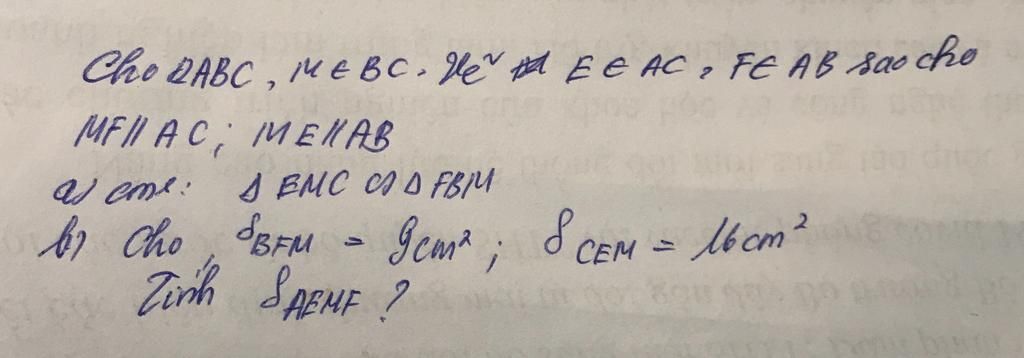 Cho ΔABC, M ∈ BC. Kẻ E ∈ AC, F ∈ AB sao cho
MF // AC; ME // AB
a) cmr: Δ EMC ∽ Δ FBM
b) Cho S_BFM = 9cm²; S_CEM = 16cm²
Tính S_AEMF?